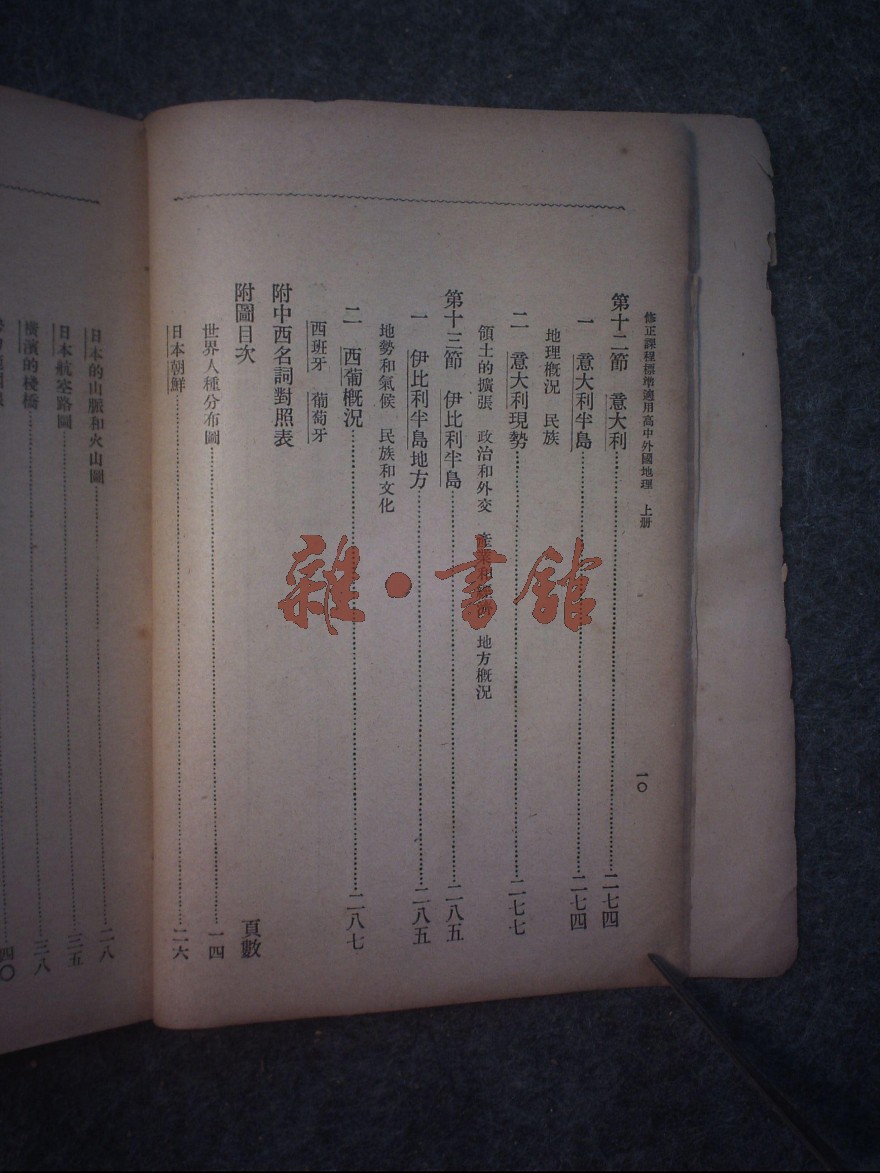 修正課程標準適用高中外國地理　上册
一〇
第十二節　意大利……二七四
一　意大利半島……二七四
地理概況　民族
二　意大利現勢……二七七
領土的擴張　政治和外交　產業和經濟　地方概況
第十三節　伊比利半島……二八五
一　伊比利半島地方……二八五
地勢和氣候　民族和文化
二　西葡概況……二八七
西班牙　葡萄牙
附中西名詞對照表
附圖目次　頁數
世界人種分布圖……一四
日本朝鮮……二六
日本的山脈和火山圖……二八
日本航空路圖……三五
橫濱的棧橋……三八
四〇
雜·書館